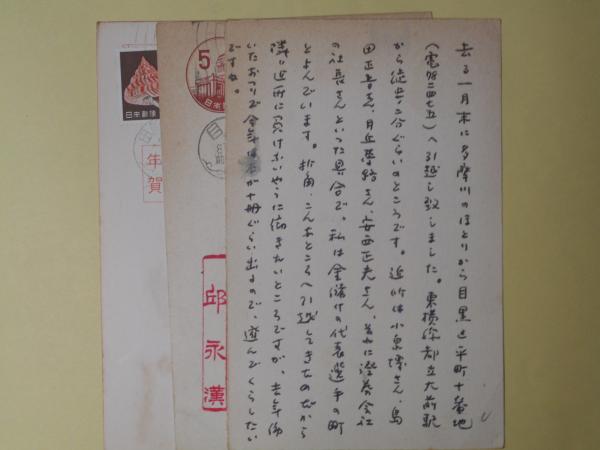 去る一月末に多摩川のほとりから目黒区平町十番地
へ引越し致しました。東横線都立大前駅
から徒歩二分ぐらいのところです。近所は小泉博さん、島
田正吾さん、月丘夢路さん、安西正夫さん、それに證券会社
の社長さんといった具合で、私は金儲けの代表選手の町
とよんでいます。折角、こんなところへ引越してきたのだから
隣り近所に負けないやうに働きたいところですが、去年働
いたおつりで今年は本が十冊ぐらい出るので、遊んでくらしたい
ですね。
邱永漢
5
日本郵便
日本郵便
年賀